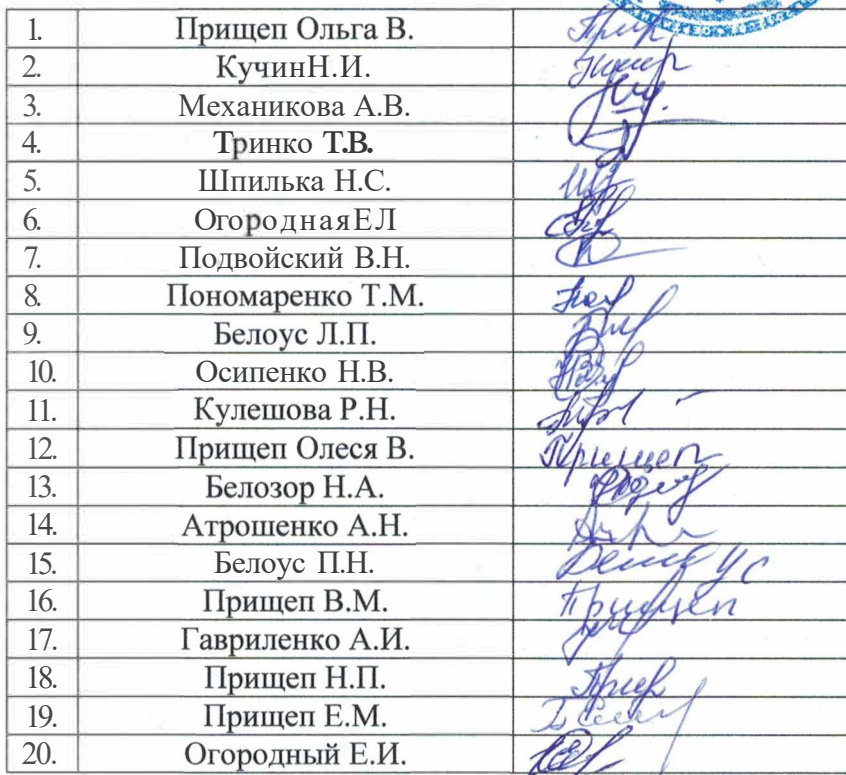 1. Прищеп Ольга В.
2. КучинН.И.
3. Механикова А.В.
4. Тринко Т.В.
5. Шпилька Н.С.
6. ОгороднаяЕЛ
7. Подвойский В.Н.
8. Пономаренко Т.М.
9. Белоус Л.П.
10. Осипенко Н.В.
11. Кулешова Р.Н.
12. Прищеп Олеся В. Прищеп
13. Белозор Н.А.
14. Атрошенко А.Н.
15. Белоус П.Н. Белоус
16. Прищеп В.М. Прищеп
17. Гавриленко А.И.
18. Прищеп Н.П.
19. Прищеп Е.М.
20. Огородный Е.И.